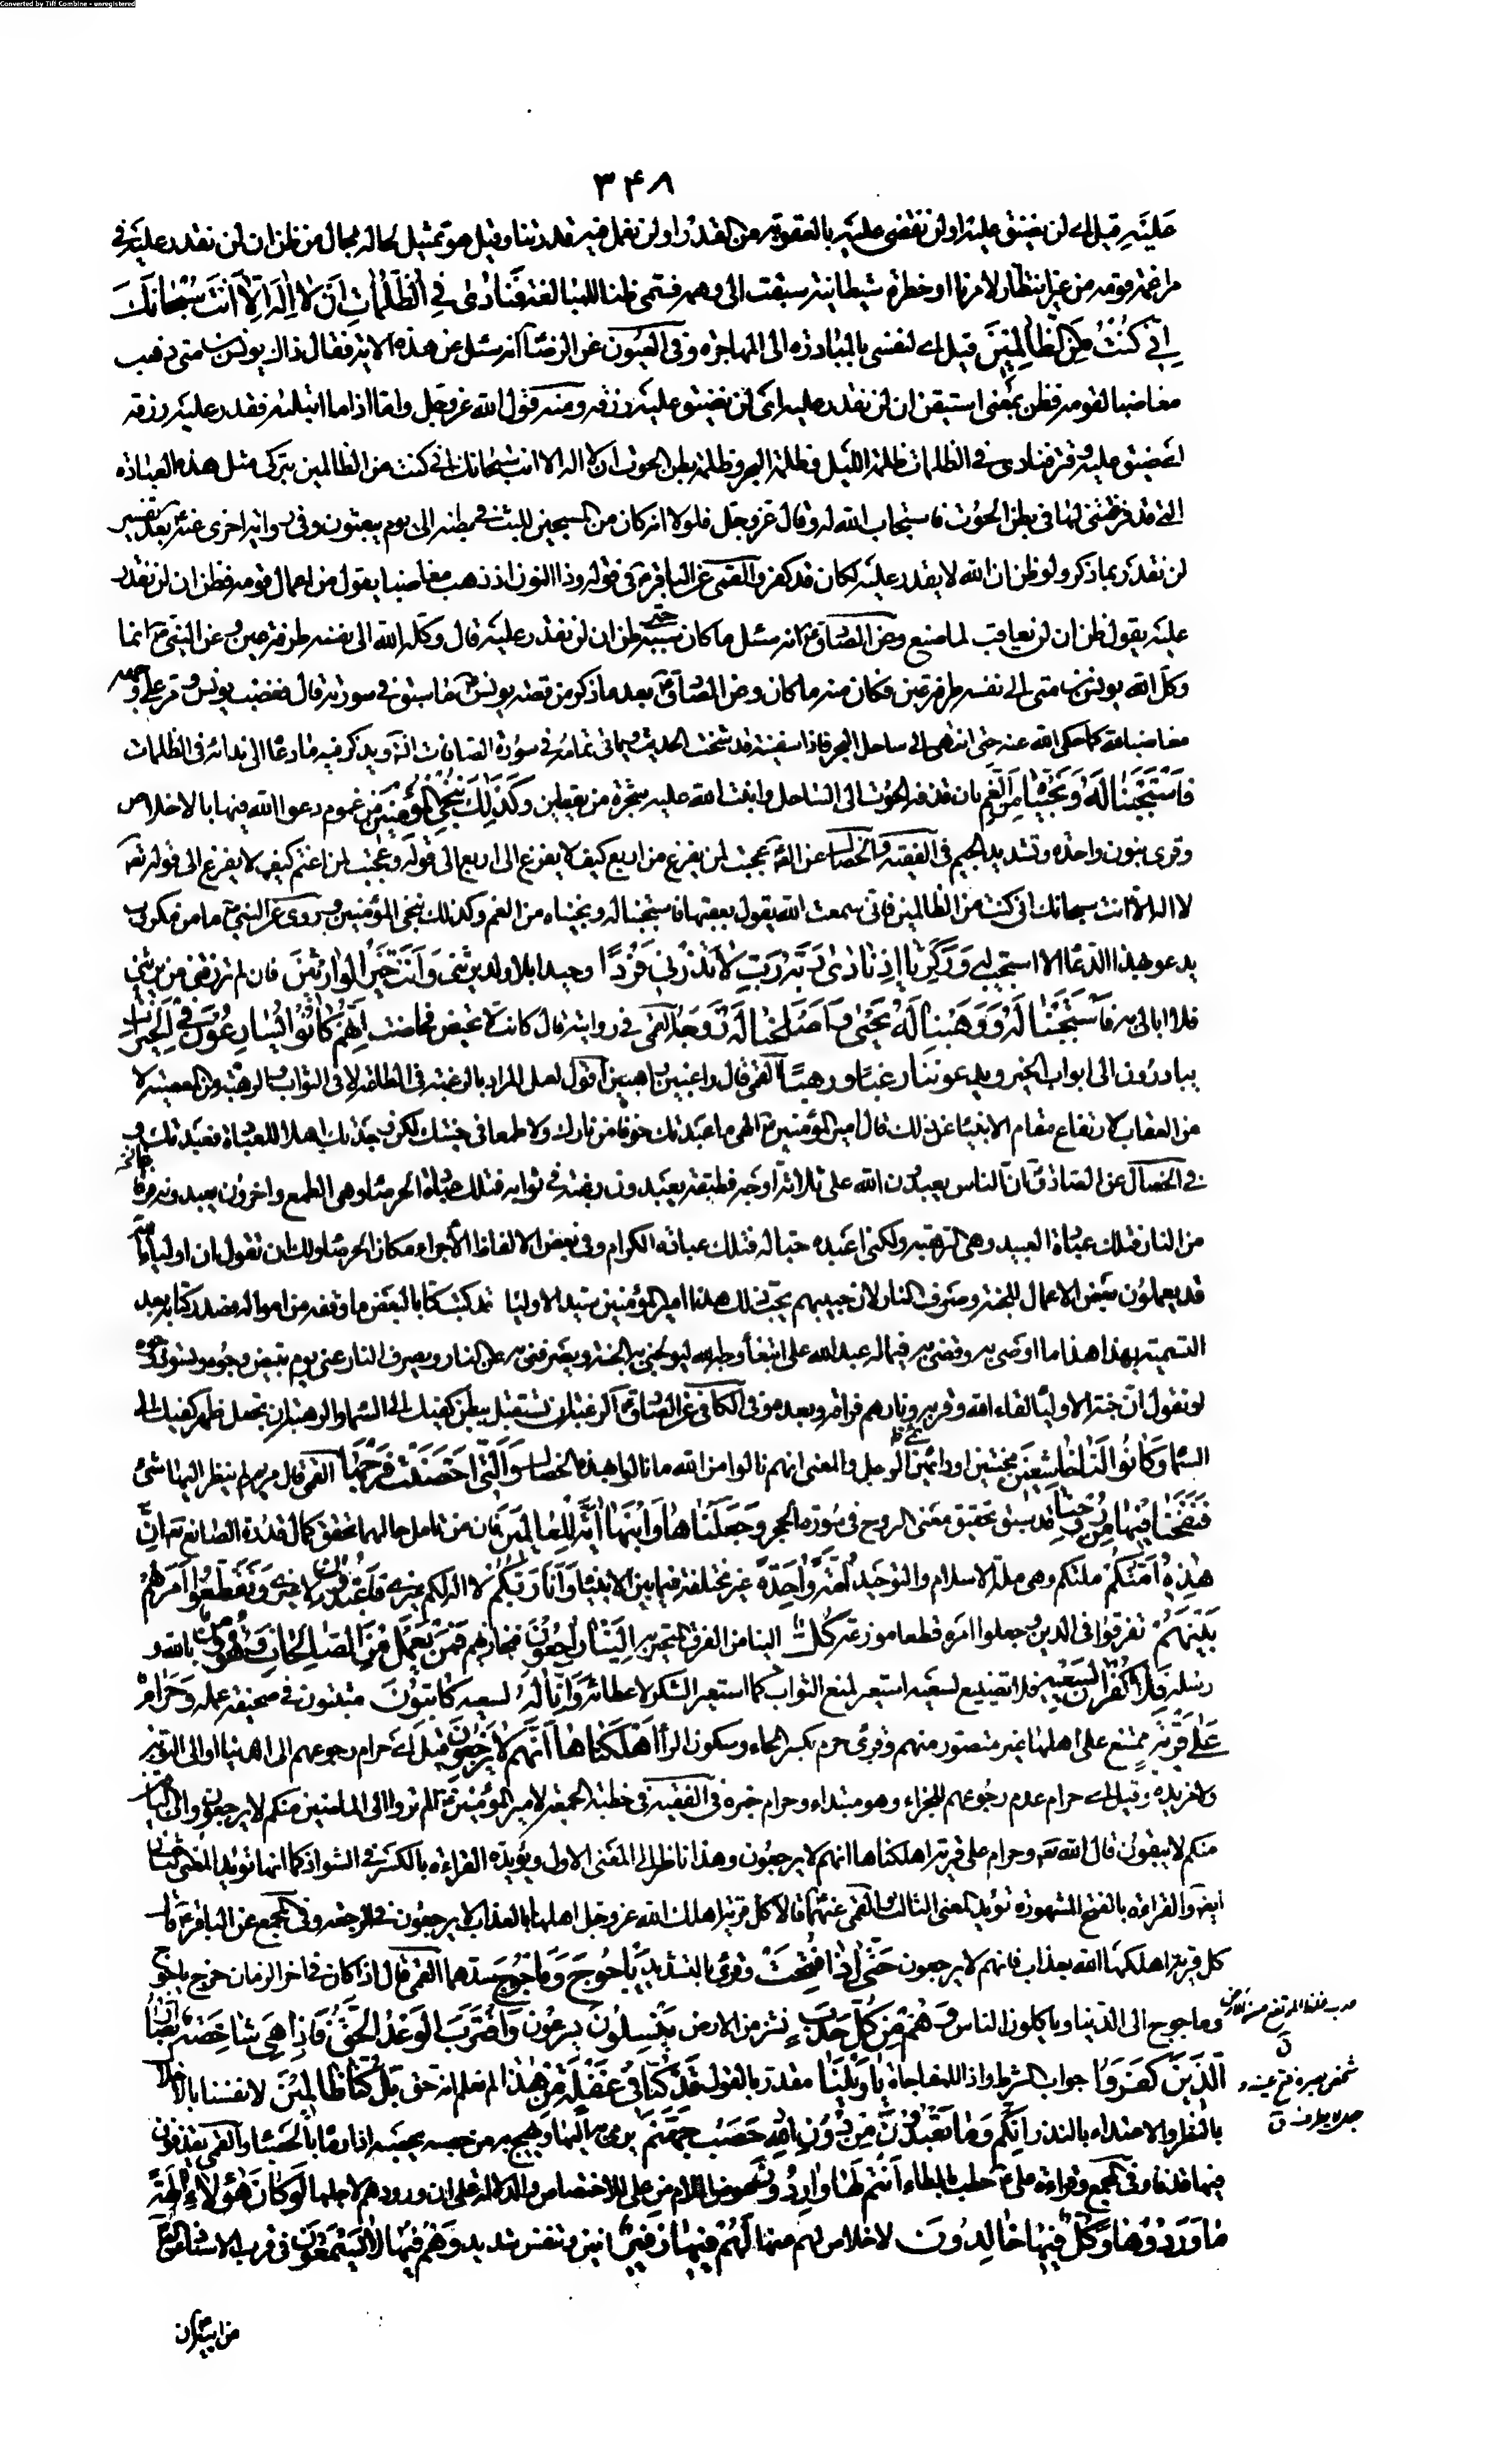 Converted by Tiff Combine - unregistered
۳۴۸
عليه قيل اے لن نضيق عليه او لن نقضى عليه بالعقوبة من القدر او لن نعمل فيه قدرتنا وقيل هو تمثيل لحاله بحال من ظن ان لن نقدر عليه في
مراغمة قومه من غير انتظار لامرنا او خطرة شيطانية سبقت الى وهمه فسمى ظنا للمبالغة فَنَادىٰ فِي الظُّلُمَاتِ اَنْ لاٰ اِلٰهَ اِلاّٰ اَنْتَ سُبْحٰانَكَ
اِنّي كُنْتُ مِنَ الظّٰالِمِينَ قيل اے لنفسى بالمبادرة الى المهاجرة وفى العيون عن الرضا انه سئل عن هذه الاية فقال ذاك يونس بن متى ذهب
مغاضبا لقومه فظن بمعنى استيقن ان لن نقدر عليه اى لن نضيق عليه رزقه ومنه قول الله عز وجل واما اذا ما ابتليه فقدر عليه رزقه
اى ضيق عليه وقتر فنادى فى الظلمات ظلمة الليل وظلمة البحر وظلمة بطن الحوت ان لا اله الا انت سبحانك انى كنت من الظالمين بتركى مثل هذه العبادة
التى قد فرغتنى لها فى بطن الحوت فاستجاب الله له وقال عز وجل فلولا انه كان من المسبحين للبث فى بطنه الى يوم يبعثون وفى رواية اخرى عنه بعد تفسير
لن نقدر بما ذكر ولو ظن ان الله لا يقدر عليه لكان قد كفر والقمى عن الباقر ع فى قوله وذا النون اذ ذهب مغاضبا يقول من اعمال قومه فظن ان لن نقدر
عليه يقول ظن ان لن نعاقب لما صنع وعن الصادق ع انه سئل ما كان سببه حتى ظن ان لن نقدر عليه قال وكله الله الى نفسه طرفة عين وعن النبى ص انما
وكل الله يونس بن متى الى نفسه طرفة عين فكان منه ما كان وعن الصادق ع بعد ما ذكر من قصة يونس ما سبق فى سورته قال فغضب يونس ومر على وجهه
مغاضبا لله كما حكى الله عنه حتى انتهى الى ساحل البحر فاذا سفينة قد شحنت الحديث وياتى تمامه فى سورة الصافات انش ويذكر فيه ما دعا الى ندائه فى الظلمات
فَاسْتَجَبْنٰا لَهُ وَنَجَّيْنٰاهُ مِنَ الْغَمِّ بان قذفه الحوت الى الساحل وانبت الله عليه شجرة من يقطين وَكَذٰلِكَ نُنْجِي الْمُؤْمِنِينَ من غموم دعوا الله فيها بالاخلاص
وقرى بنون واحدة وتشديد الجيم فى الفقيه والخصال عن الص عجبت لمن يفزع من اربع كيف لا يفزع الى اربع الى قوله وعجبت لمن اغتم كيف لا يفزع الى قوله تعه
لا اله الا انت سبحانك انى كنت من الظالمين فانى سمعت الله يقول بعقبها فاستجبنا له ونجيناه من الغم وكذلك ننجى المؤمنين وروى عن النبى ص ما من مكروب
يدعو بهذا الدعا الا استجيب له وَزَكَرِيّٰا اِذْ نٰادىٰ رَبَّهُ رَبِّ لاٰ تَذَرْنِي فَرْدًا وحيدا بلا ولد يرثنى وَاَنْتَ خَيْرُ الْوٰارِثِينَ فان لم ترزقنى من يرثنى
فلا ابالى به فَاسْتَجَبْنٰا لَهُ وَوَهَبْنٰا لَهُ يَحْيىٰ وَاَصْلَحْنٰا لَهُ زَوْجَهُ القمى فى رواية قال كانت لا تحيض فحاضت اِنَّهُمْ كٰانُوا يُسٰارِعُونَ فِي الْخَيْرٰاتِ
يبادرون الى ابواب الخير ويدعوننا رغبًا ورهبًا القمى قال راغبين راهبين اقول لعل المراد بالرغبة فى الطاعة لا فى الثواب والرهبة من المعصية لا
من العقاب لارتفاع مقام الانبيا عن ذلك قال امير المؤمنين ع الهى ما عبدتك خوفا من نارك ولا طمعا فى جنتك لكن وجدتك اهلا للعبادة فعبدتك و
فى الخصال عن الصادق ع ان الناس يعبدون الله على ثلاثة اوجه فطبقة يعبدونه رغبة فى ثوابه فتلك عبادة الحرصا وهى الطمع واخرون يعبدونه فرقا
من النار فتلك عبادة العبيد وهى الرهبة ولكنى اعبده حبا له فتلك عبادة الكرام وفى بعض الالفاظ الاجراء مكان الحرصا ولك ان تقول ان اولياء الله
قد يعملون بعض الاعمال للجنة وصرف النار لان حبيبهم يحب ذلك هذا امير المؤمنين سيد الاوليا قد كتب كتابا لبعض ما وقفه من امواله فصدر كتابه بعد
التسمية بهذا هذا ما اوصى به وقضى به فى ماله عبد الله على ابتغاء وجه الله ليولجنى به الجنة ويصرفنى به عن النار ويصرف النار عنى يوم تبيض وجوه وتسود وجوه
او نقول ان جنة الاوليا لقاء الله وقربه ونارهم فراقه وبعده وفى الكافى عن الصادق ع الرغبة ان تستقبل ببطن كفيك الى السماء والرهبة ان تجعل ظهر كفيك الى
السما وَكٰانُوا لَنٰا خٰاشِعِينَ مخبتين او دائمين الوجل والمعنى انهم نالوا من الله ما نالوا بهذه الخصال وَالَّتِي اَحْصَنَتْ فَرْجَهٰا القمى قال مريم لم ينظر اليها شئ
فَنَفَخْنٰا فِيهٰا مِنْ رُوحِنٰا قد سبق تحقيق معنى الروح فى سورة الحجر وَجَعَلْنٰاهٰا وَابْنَهٰا اٰيَةً لِلْعٰالَمِينَ فان من تامل حالهما تحقق كمال قدرة الصانع تعه اِنَّ
هٰذِهِ اُمَّتُكُمْ ملتكم وهى ملة الاسلام والتوحيد اُمَّةً وٰاحِدَةً غير مختلفة فيما بين الانبيا وَاَنَا رَبُّكُمْ لا اله لكم غيرى فَاعْبُدُونِ لا غيرى وَتَقَطَّعُوا اَمْرَهُمْ
بَيْنَهُمْ تفرقوا فى الدين وجعلوا امره قطعا موزعة كُلٌّ الينا من الفرق المتحزبة اِلَيْنٰا رٰاجِعُونَ فنجازيهم فَمَنْ يَعْمَلْ مِنَ الصّٰالِحٰاتِ وَهُوَ مُؤْمِنٌ بالله و
رسله فَلاٰ كُفْرٰانَ لِسَعْيِهِ فلا تضييع لسعيه استعير لمنع الثواب كما استعير الشكر لاعطائه وَاِنّٰا لَهُ لسعيه كٰاتِبُونَ مثبتون فى صحيفة عمله وَحَرٰامٌ
عَلىٰ قَرْيَةٍ ممتنع على اهلها غير متصور منهم وقرئ حرم بكسر الحاء وسكون الراء اَهْلَكْنٰاهٰا اَنَّهُمْ لاٰ يَرْجِعُونَ قيل اے حرام رجوعهم الى الدنيا او الى التوبة
ولا مزيدة وقيل اے حرام عدم رجوعهم للجزاء وهو مبتداء وحرام خبره فى الفقيه فى خطبة الجمعة لامير المؤمنين ع الم تروا الى الماضين منكم لا يرجعون والى الباقين
منكم لا يبقون قال الله تعه وحرام على قرية اهلكناها انهم لا يرجعون وهذا ناظر الى المعنى الاول ويؤيده القراءة بالكسر فى الشواذ كما انها تؤيد المعنى الثانى
ايضه والقراءة بالفتح المشهورة تؤيد المعنى الثالث والقمى عنهما ع قالا كل قرية اهلك الله عز وجل اهلها بالعذاب لا يرجعون فى الرجعة وفى المجمع عن الباقر ع قال
كل قرية اهلكها الله بعذاب فانهم لا يرجعون حَتّىٰ اِذٰا فُتِحَتْ وقرئ بالتشديد يَاْجُوجُ وَمَاْجُوجُ سدهما القمى قال اذا كان فى اخر الزمان خرج ياجوج
وماجوج الى الدنيا وياكلون الناس وَهُمْ مِنْ كُلِّ حَدَبٍ نشز من الارض يَنْسِلُونَ يسرعون وَاقْتَرَبَ الْوَعْدُ الْحَقُّ فَاِذٰا هِيَ شٰاخِصَةٌ اَبْصٰارُ
الَّذِينَ كَفَرُوا جواب الشرط واذا للمفاجاة يٰا وَيْلَنٰا مقدر بالقول قَدْ كُنّٰا فِي غَفْلَةٍ مِنْ هٰذٰا لم نعلم انه حق بَلْ كُنّٰا ظٰالِمِينَ لانفسنا بالاخلال
بالنظر والاعتداء بالنذر اِنَّكُمْ وَمٰا تَعْبُدُونَ مِنْ دُونِ اللّٰهِ حَصَبُ جَهَنَّمَ يرمى به اليها وتهيج به من حصبه يحصبه اذا رماه بالحصبا والقمى يقذفون
فيها قذفا وفى المجمع وقراءة على ع حطب بالطاء اَنْتُمْ لَهٰا وٰارِدُونَ عوض اللام من على للاختصاص والدلالة على ان ورودهم لاجلها لَوْ كٰانَ هٰؤُلاٰءِ اٰلِهَةً
مٰا وَرَدُوهٰا وَكُلٌّ فِيهٰا خٰالِدُونَ لا خلاص لهم منها لَهُمْ فِيهٰا زَفِيرٌ انين وتنفس شديد وَهُمْ فِيهٰا لاٰ يَسْمَعُونَ فى قرب الاسناد عن